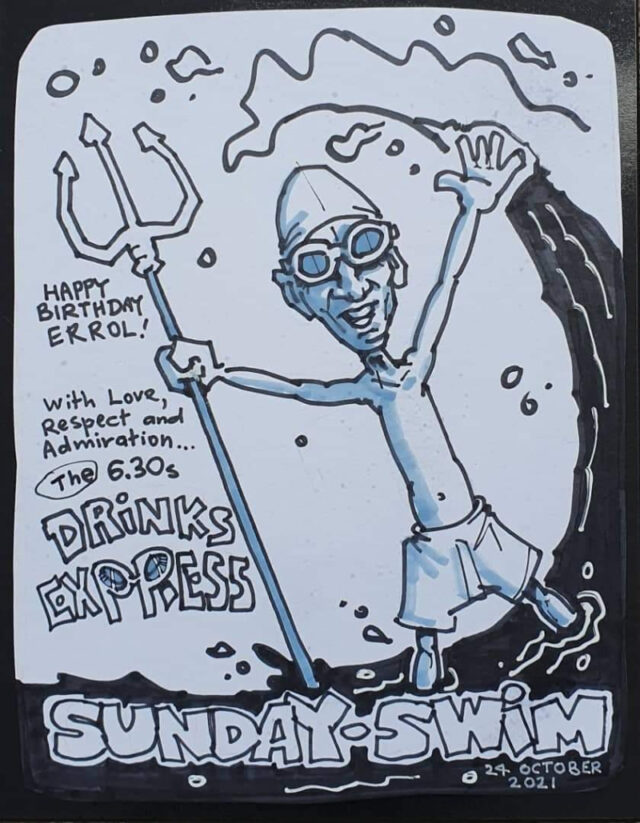 HAPPY
BIRTHDAY
ERROL!
With Love,
Respect and
Admiration...
The 6.30s
DRINKS
EXPRESS
SUNDAY-SWIM
24 OCTOBER
2021